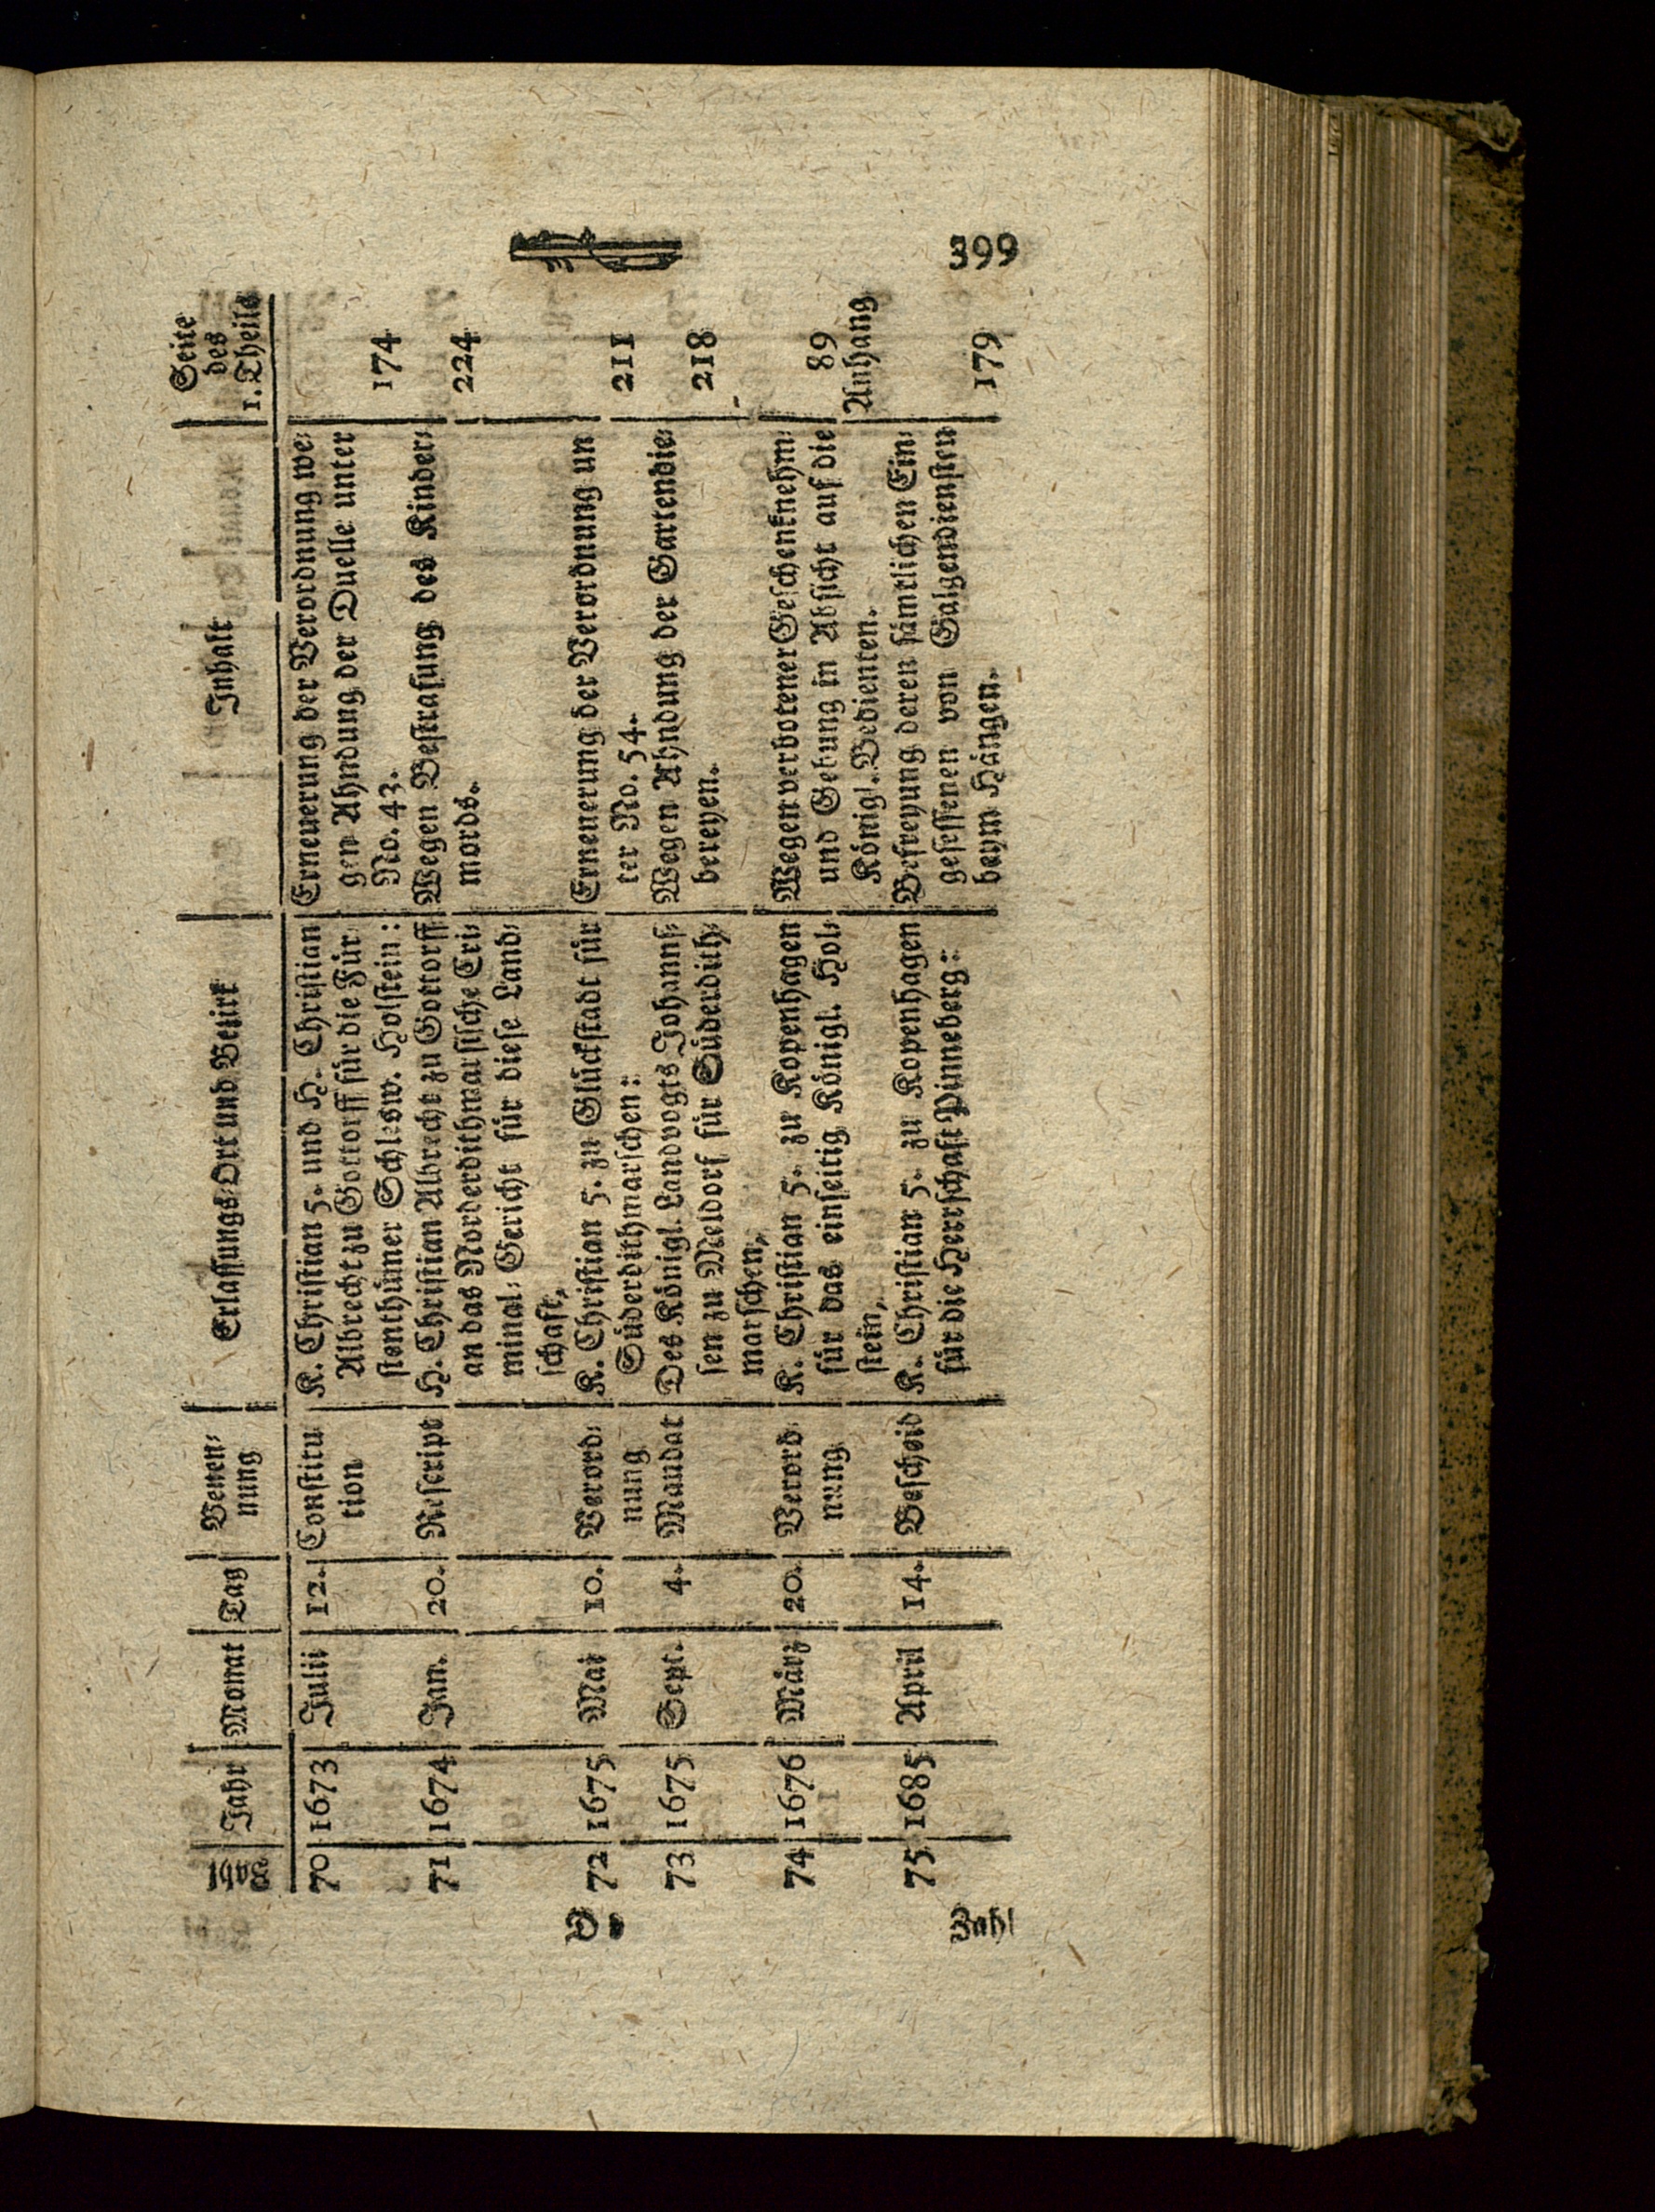 399
Zahl | Jahr | Monat | Tag | Benen⸗ nung | Erlassungs⸗Ort und Bezirk | Inhalt | Seite des 1. Theils
70 | 1673 | Julii | 12. | Constitu | K. Christian 5. und H. Christian | Erneuerung der Verordnung we⸗
tion | Albrecht zu Gottorff für die Für | gen Ahndung der Duelle unter | 174
stenthümer Schlesw. Holstein: | No. 43.
71 | 1674 | Jan. | 20. | Rescript | H. Christian Albrecht zu Gottorff | Wegen Bestrafung des Kinder⸗
an das Norderdithmarsische Cri⸗ | mords. | 224
minal⸗Gericht für diese Land⸗
schaft,
72 | 1675 | Mai | 10. | Verord⸗ | K. Christian 5. zu Glückstadt für | Erneuerung der Verordnung un
nung | Süderdithmarschen: | ter No. 54. | 211
73 | 1675 | Sept. | 4. | Mandat | Des Königl. Landvogts Johann⸗ | Wegen Ahndung der Gartendie⸗
sen zu Meldorf für Süderdith⸗ | bereyen. | 218
marschen,
74 | 1676 | März | 20. | Verord | K. Christian 5. zu Kopenhagen | Wegen verbotener Geschenknehm⸗
nung | für das einseitig Königl. Hol⸗ | und Gebung in Absicht auf die | 89
stein, | Königl. Bedienten. | Anhang
75 | 1685 | April | 14. | Bescheid | K. Christian 5. zu Kopenhagen | Befreyung deren sämtlichen Ein⸗
für die Herrschaft Pinneberg: | gesessenen von Galgendiensten
beym Hängen. | 179
Zahl